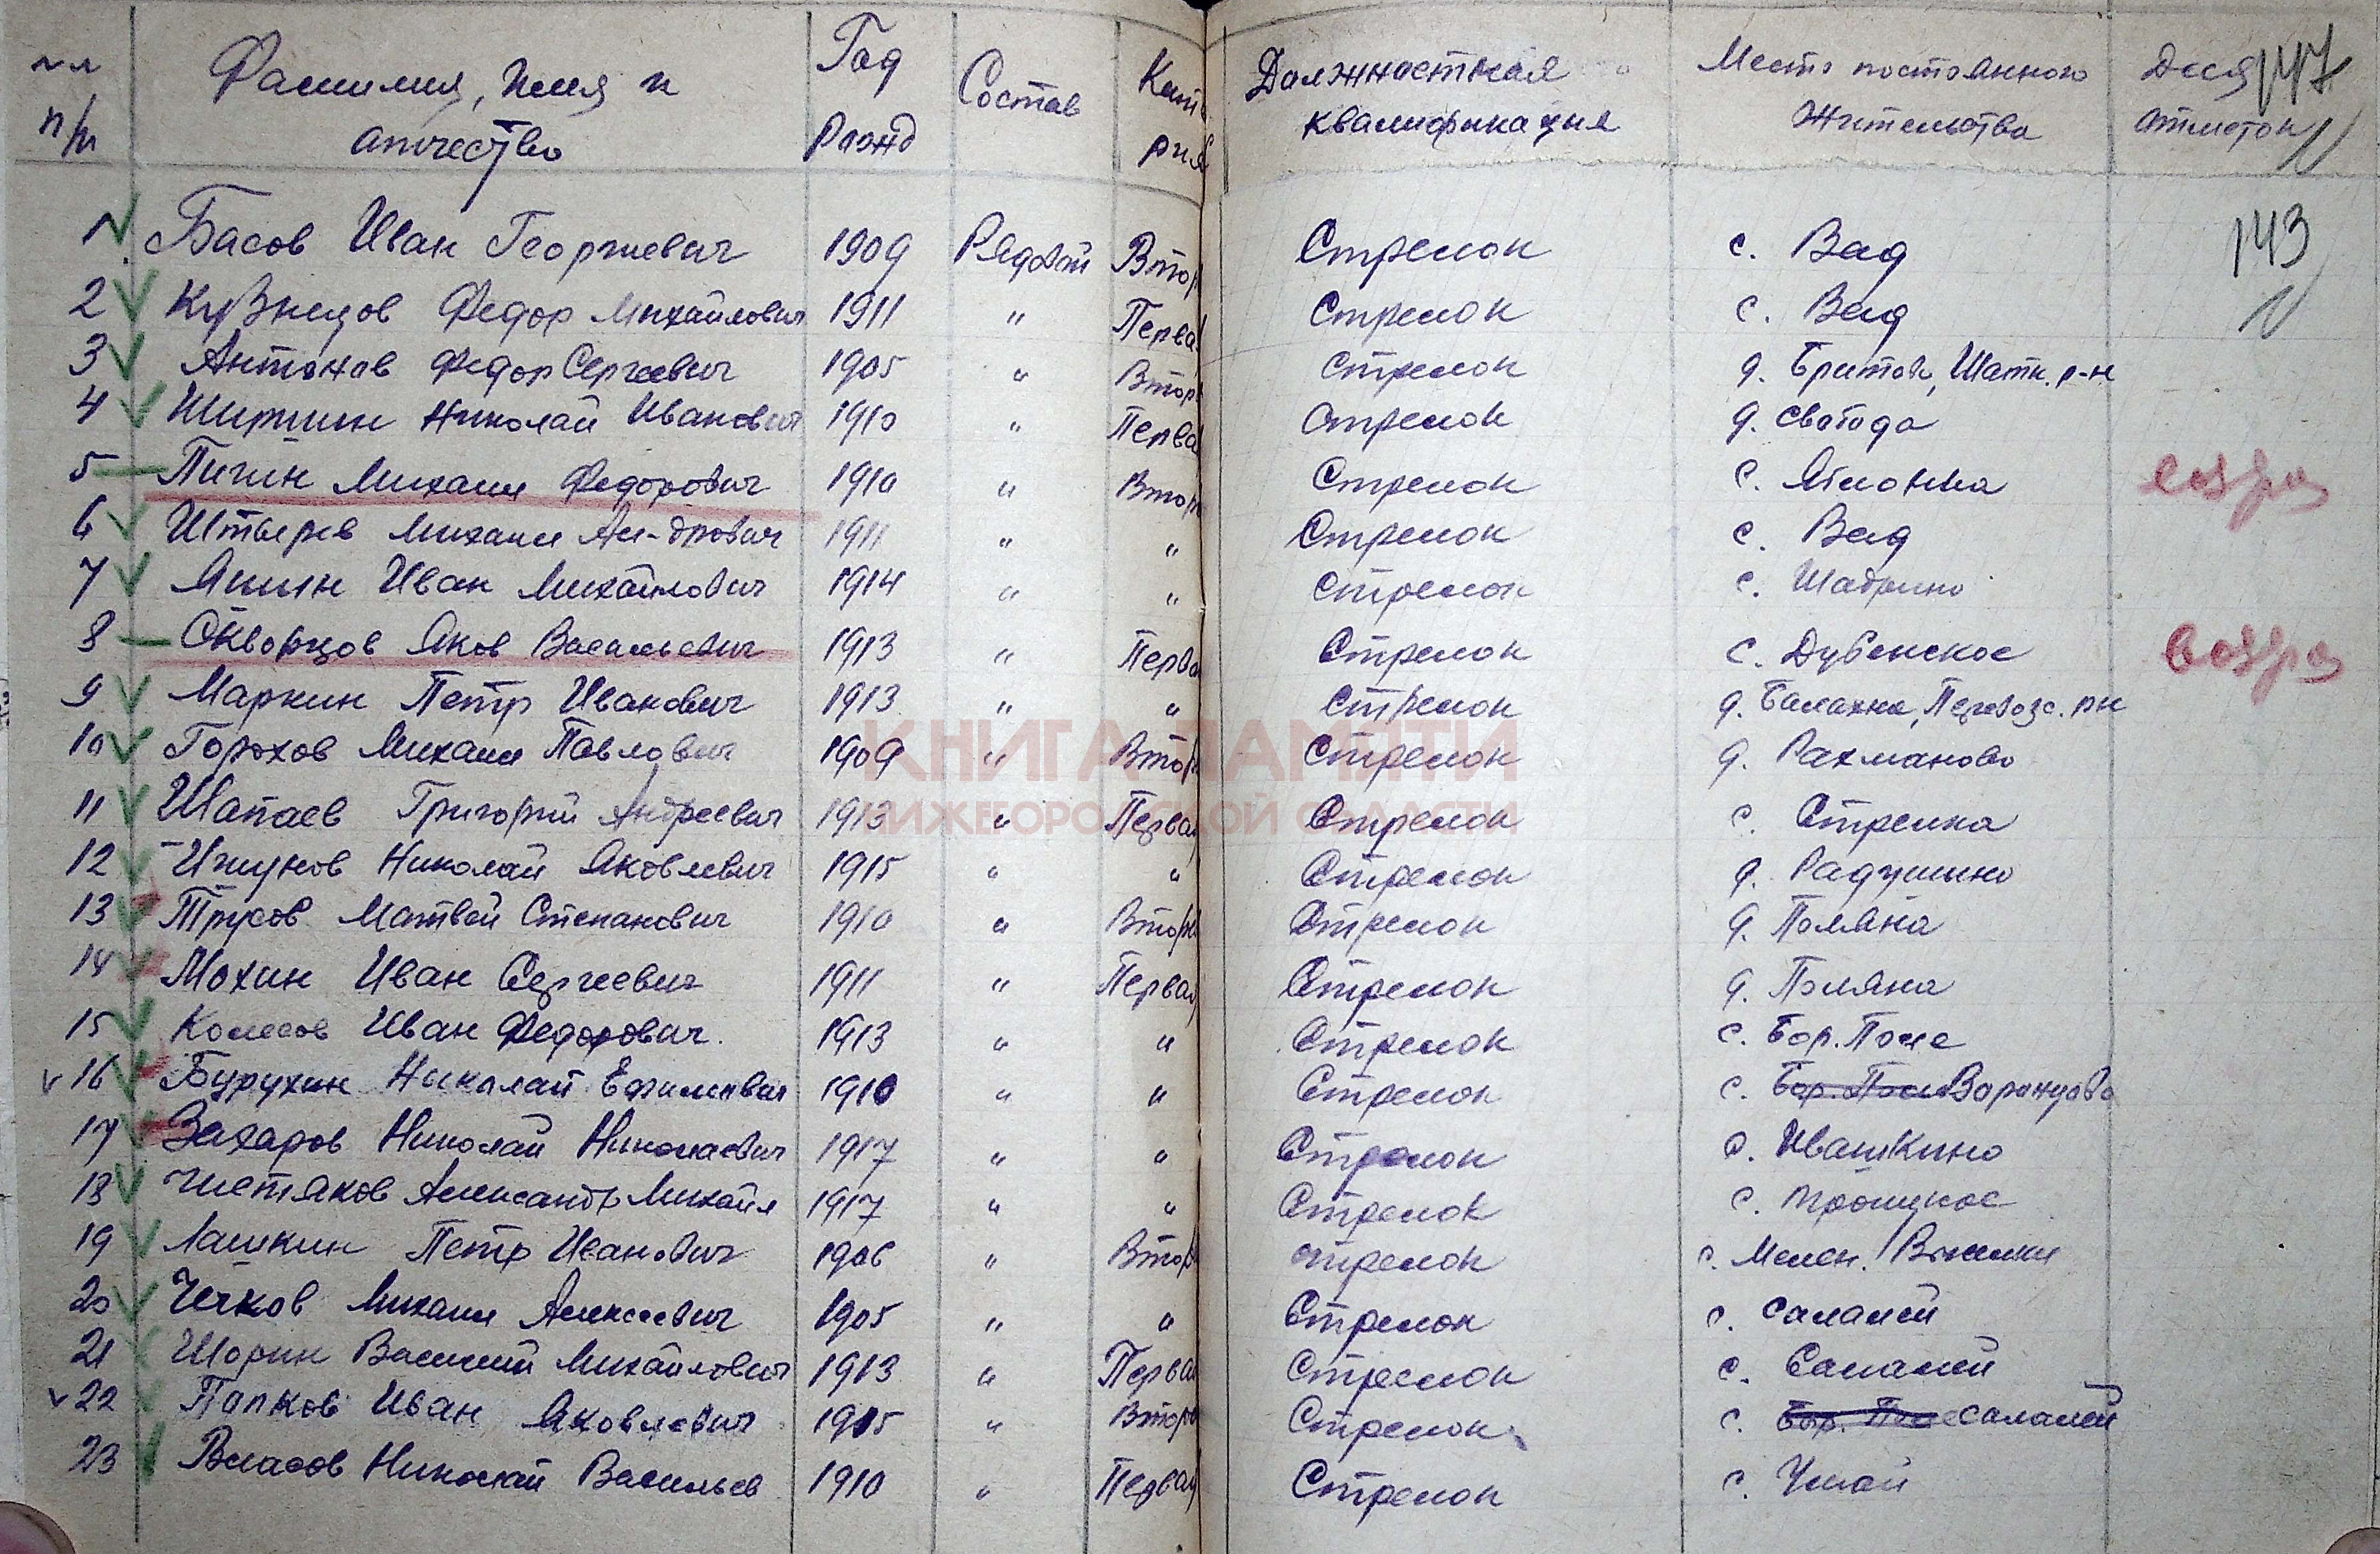 №№ п/п Фамилия, Имя и отчество Год рожд Состав Кате рия Должностная квалификация Место постоянного жительства Для отметок 147
1 Басов Иван Георгиевич 1909 Рядовой Втор Стрелок с. Вад 143
2 Кузнецов Федор Михайлович 1911 " Первая Стрелок с. Вад
3 Антонов Федор Сергеевич 1905 " Втор Стрелок д. Бритово, Шатк. р-н
4 Ширшин Николай Иванович 1910 " Перва Стрелок д. Свобода
5 Пичин Михаил Федорович 1910 " Втор Стрелок с. Яблонка возвра
6 Штырев Михаил Ал-дрович 1911 " " Стрелок с. Вад
7 Яшин Иван Михайлович 1914 " " Стрелок с. Шадрино
8 Скворцов Яков Васильевич 1913 " Перва Стрелок с. Дубенское возвра
9 Маркин Петр Иванович 1913 " " Стрелок д. Балахна, Перевозс. рн
10 Горохов Михаил Павлович 1909 " Втор Стрелок д. Рахманово
КНИГА ПАМЯТИ
НИЖЕГОРОДСКОЙ ОБЛАСТИ
11 Шапаев Григорий Андреевич 1913 " Первая Стрелок с. Стрелка
12 Николай Яковлевич 1915 " " Стрелок д. Радушино
13 Трусов Матвей Степанович 1910 " Втор Стрелок д. Поляна
14 Мохин Иван Сергеевич 1911 " Первая Стрелок д. Поляна
15 Колесов Иван Федорович. 1913 " " Стрелок с. Бор. Поле
v 16 Бурухин Николай Ефимович 1910 " " Стрелок с. Бор. Поле Варнуково
17 Захаров Николай Николаевич 1917 " " Стрелок с. Ивашкино
18 Чистяков Александр Михайл 1917 " " Стрелок с. Троицкое
19 Лашкин Петр Иванович 1906 " Втор Стрелок с. Мелен.
20 Чечков Михаил Алексеевич 1905 " " Стрелок с. Салалей
21 Шорин Василий Михайлович 1913 " Первая Стрелок с. Салалей
v 22 Папков Иван Яковлевич 1905 " Втор Стрелок с. Бор. Поле Салалей
23 Власов Николай Васильев 1910 " Первая Стрелок с. Умай